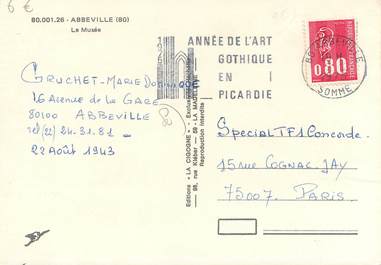 6 €
80.001.26 - ABBEVILLE (80)
Le Musée
GRUCHET-MARIE DOMINIQUE
16 Avenue de la GARE
80100 ABBEVILLE
Tel (22) 24.31.81
22 Août 1943
Editions « LA CIGOGNE »
98, rue Kléber - 59 - LA MADELEINE
Reproduction interdite
ANNÉE DE L'ART
GOTHIQUE
EN
PICARDIE
80 ABBEVILLE
SOMME
0.80
Special TF1 Concorde.
15 rue COGNAC-JAY
75007. PARIS